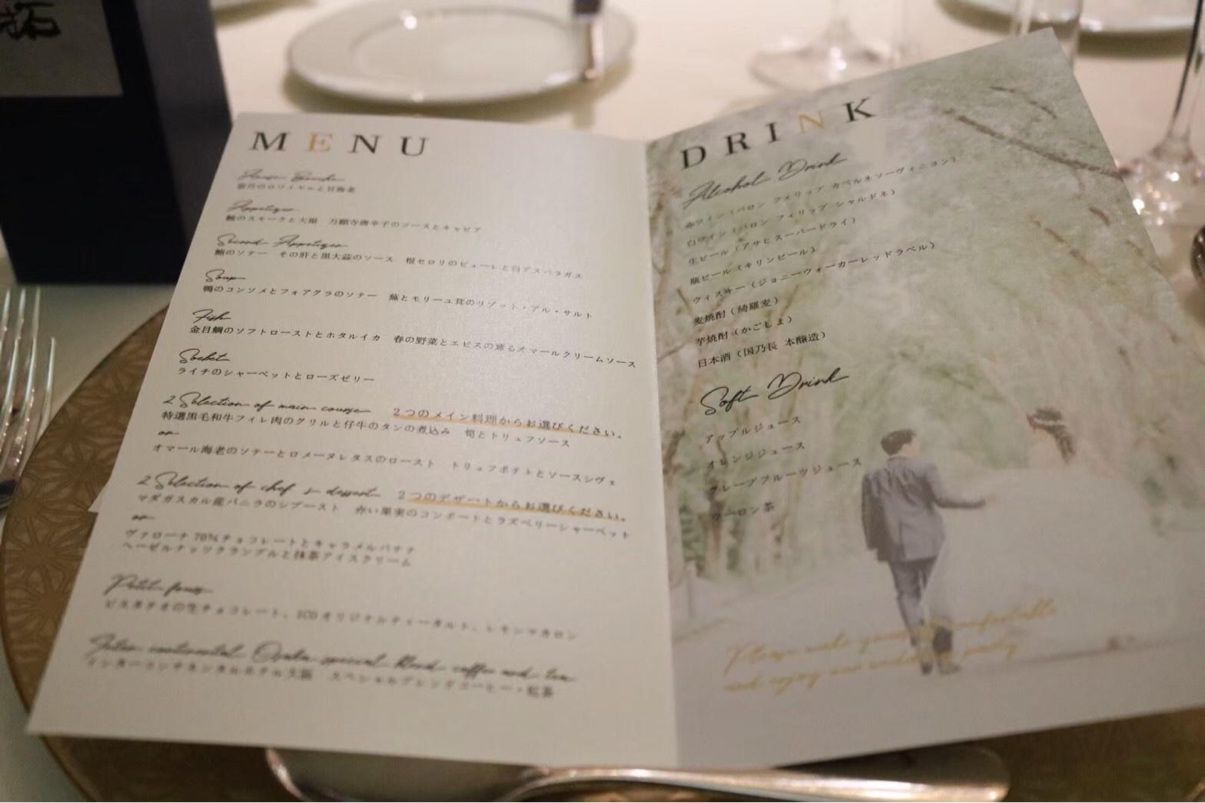 拓
MENU
Amuse Bouche
Appetizer
鰆のスモークと大根 万願寺唐辛子のソースとキャビア
Second Appetizer
鮑のソテー その肝と黒大蒜のソース 根セロリのピューレと白アスパラガス
Soup
鴨のコンソメとフォアグラのソテー 鮑とモリーユ茸のリゾット・アル・サルト
Fish
金目鯛のソフトローストとホタルイカ 春の野菜とエビスの薫るオマールクリームソース
Sorbet
ライチのシャーベットとローズゼリー
2 Selection of main course 2つのメイン料理からお選びください。
特選黒毛和牛フィレ肉のグリルと仔牛のタンの煮込み 筍とトリュフソース
or
オマール海老のソテーとロメーヌレタスのロースト トリュフポテトとソースシヴェ
2 Selection of chef's dessert 2つのデザートからお選びください。
マダガスカル産バニラのシブースト 赤い果実のコンポートとラズベリーシャーベット
or
ヴァローナ70%チョコレートとキャラメルバナナ
ヘーゼルナッツクランブルと抹茶アイスクリーム
Petit fours
ピスタチオの生チョコレート、ICOオリジナルティータルト、レモンマカロン
Inter continental Osaka special blend coffee and tea
インターコンチネンタルホテル大阪 スペシャルブレンドコーヒー・紅茶
DRINK
Alcohol Drink
赤ワイン(バロン フィリップ カベルネソーヴィニヨン)
白ワイン(バロン フィリップ シャルドネ)
生ビール(アサヒスーパードライ)
瓶ビール(キリンビール)
ウィスキー(ジョニーウォーカーレッドラベル)
麦焼酎(綺羅麦)
芋焼酎(かごしま)
日本酒(国乃長 本醸造)
Soft Drink
アップルジュース
オレンジジュース
グレープフルーツジュース
ウーロン茶
Please make yourself comfortable
and enjoy our wedding party